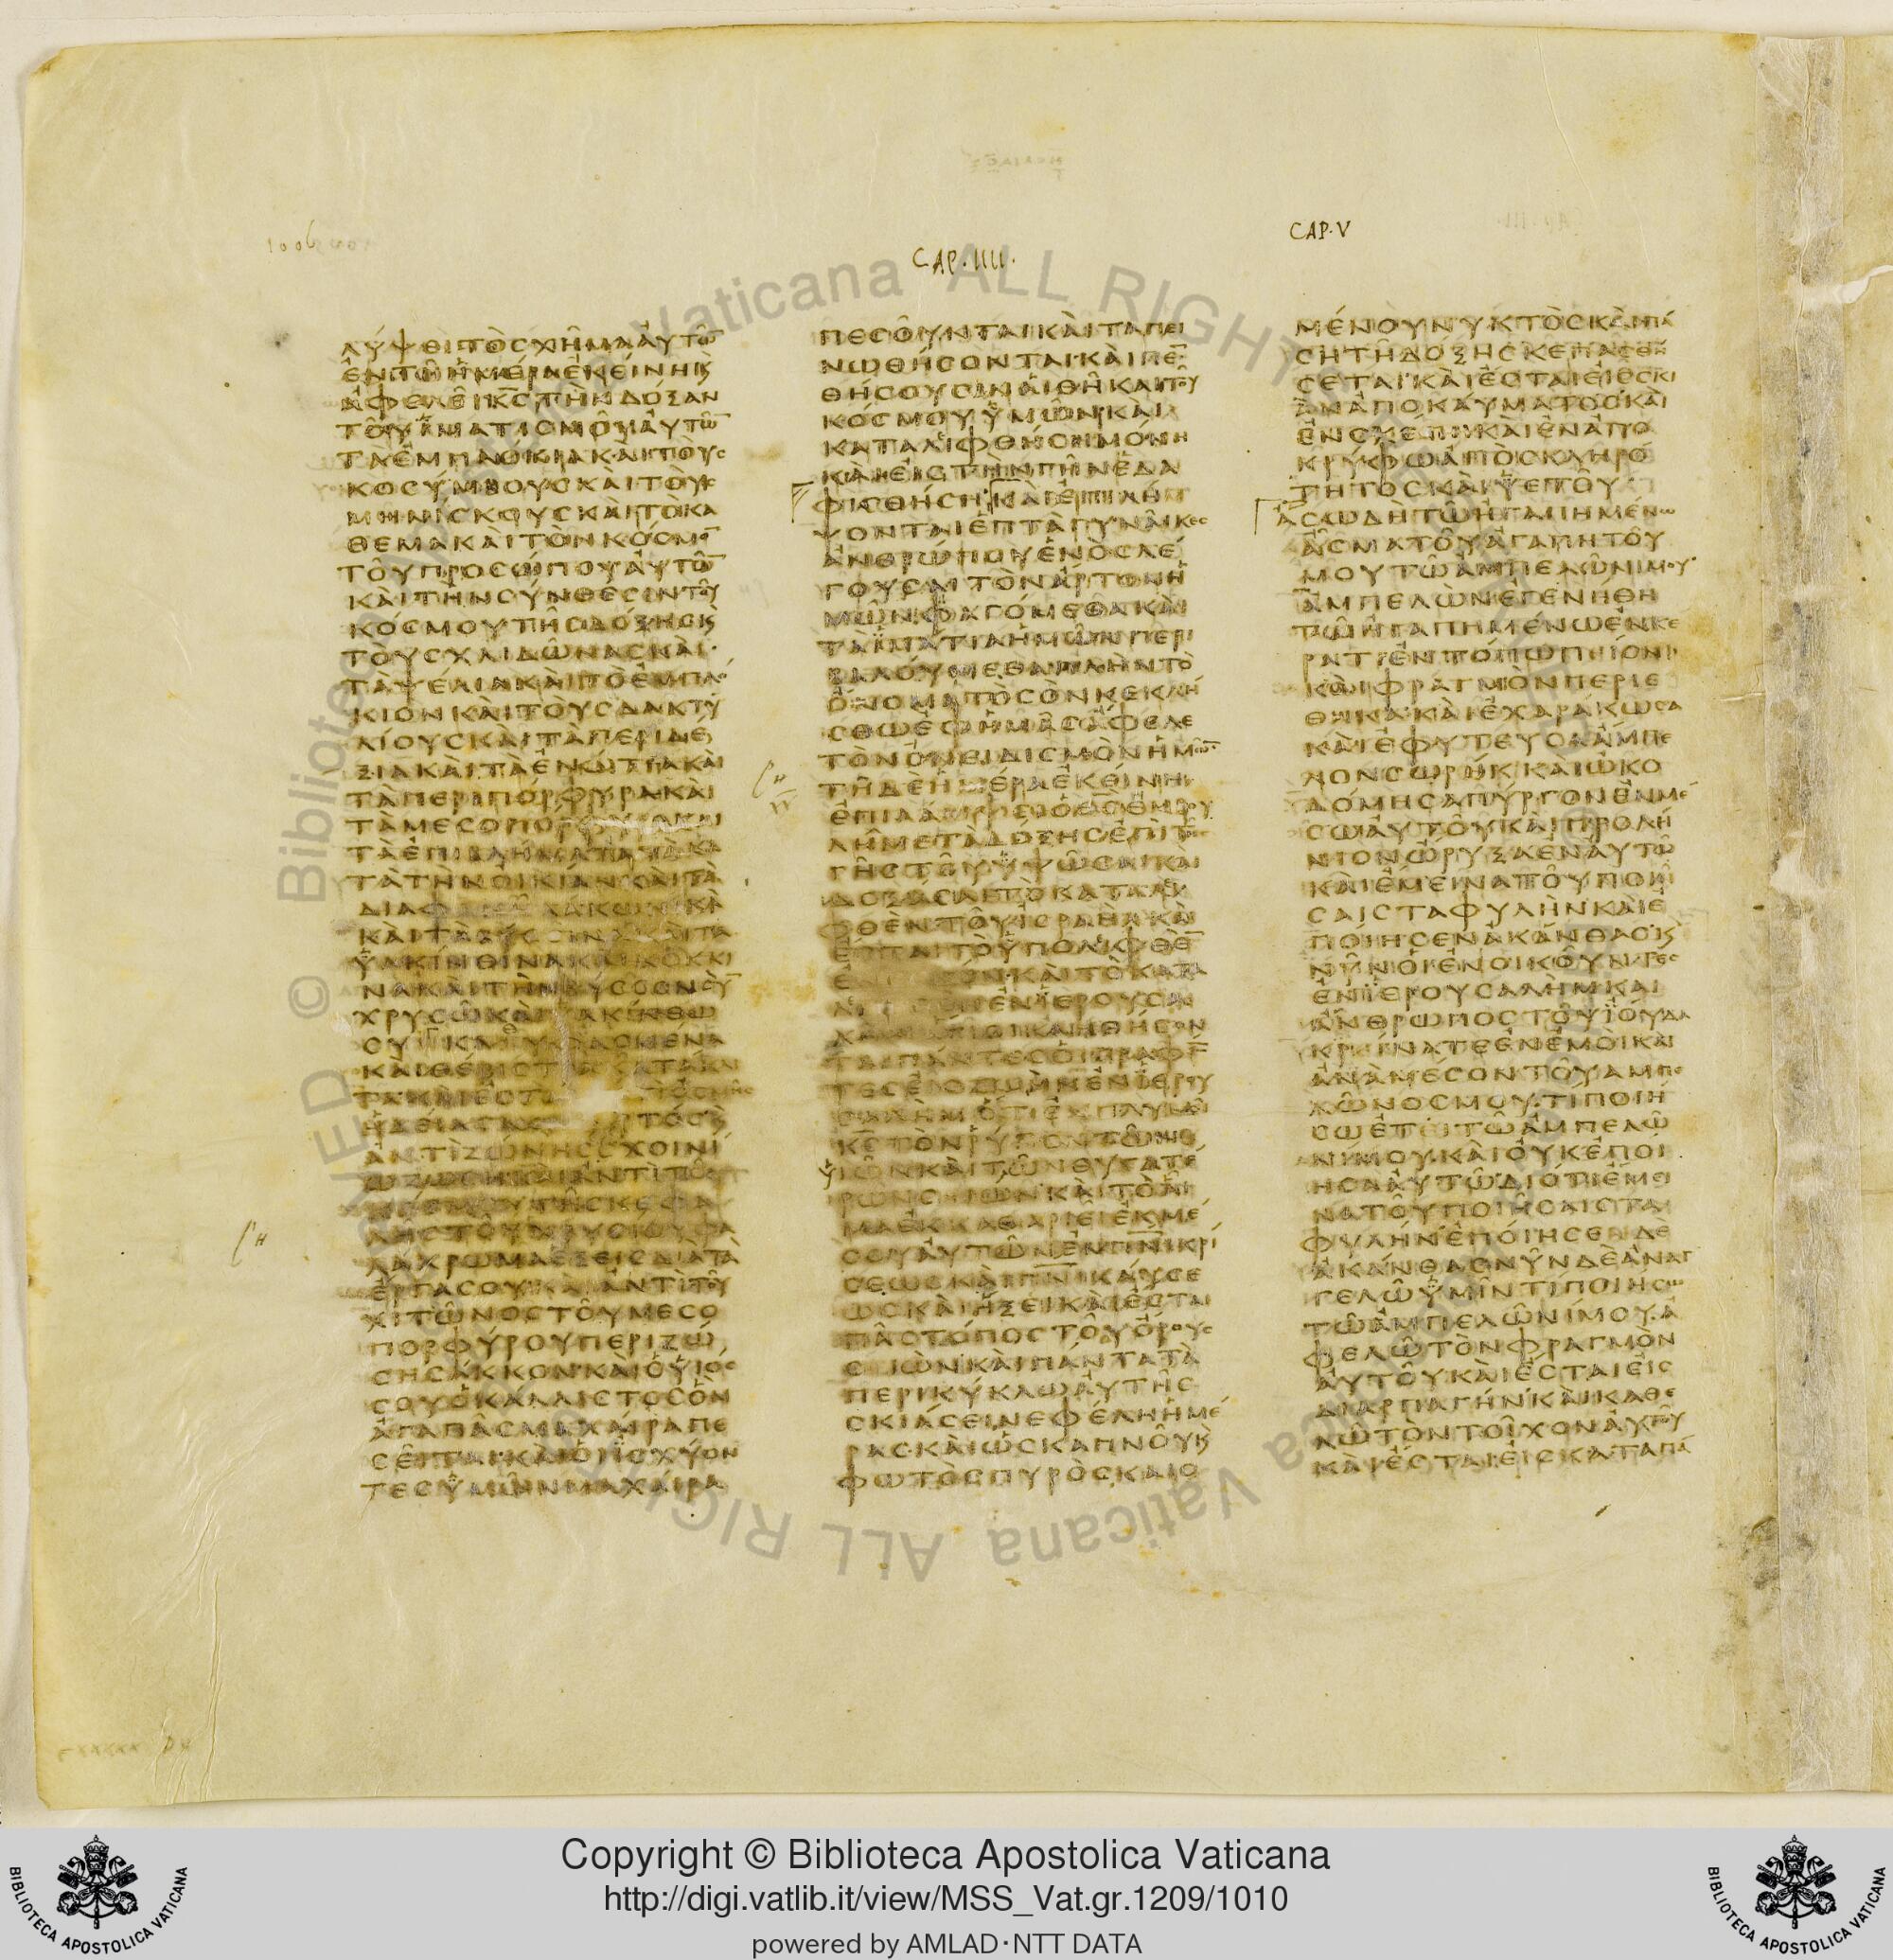 ΛΥΨΕΙΤΟϹΧΗΜΑΑΥΤΩ̅
ΕΝΤΗΗΜΕΡΑΕΚΕΙΝΗϏ
ΑΦΕΛΕΙΚ̅Ϲ̅ΤΗΝΔΟΞΑΝ
ΤΟΥΙΜΑΤΙϹΜΟΥΑΥΤΩ̅
ΤΑΕΜΠΛΟΚΙΑΚΑΙΤΟΥϹ
ΚΟϹΥΜΒΟΥϹΚΑΙΤΟΥϹ
ΜΗΝΙϹΚΟΥϹΚΑΙΤΟΚΑ
ΘΕΜΑΚΑΙΤΟΝΚΟϹΜΟ̅
ΤΟΥΠΡΟϹΩΠΟΥΑΥΤΩ̅
ΚΑΙΤΗΝϹΥΝΘΕϹΙΝΤΟΥ
ΚΟϹΜΟΥΤΗϹΔΟΞΗϹϏ
ΤΟΥϹΧΛΙΔΩΝΑϹΚΑΙ
ΤΑΨΕΛΙΑΚΑΙΤΟΕΜΠΛΟ
ΚΙΟΝΚΑΙΤΟΥϹΔΑΚΤΥ
ΛΙΟΥϹΚΑΙΤΑΠΕΡΙΔΕ
ΞΙΑΚΑΙΤΑΕΝΩΤΙΑΚΑΙ
ΤΑΠΕΡΙΠΟΡΦΥΡΑΚΑΙ
ΤΑΜΕϹΟΠΟΡΦΥΡΑΚΑΙ
ΤΑΕΠΙΒΛΗΜΑΤΑΤΑΚΑ
ΤΑΤΗΝΟΙΚΙΑΝΚΑΙΤΑ
ΔΙΑΦΑΝΗΛΑΚΩΝΙΚΑ
ΚΑΙΤΑΒΥϹϹΙΝΑΚΑΙΤΑ
ΥΑΚΙΝΘΙΝΑΚΑΙΚΟΚΚΙ
ΝΑΚΑΙΤΗΝΒΥϹϹΟΝϹΥ̅
ΧΡΥϹΩΚΑΙΥΑΚΙΝΘΩ
ϹΥΓΚΑΘΥΦΑϹΜΕΝΑ
ΚΑΙΘΕΡΙϹΤΡΑΚΑΤΑΚΛΙ
ΤΑΚΑΙΕϹΤΑΙ ΟϹΜΗϹ
ΗΔΕΙΑϹ ΡΤΟϹϏ
ΑΝΤΙΖΩΝΗϹϹΧΟΙΝΙ
ΩΖΩϹΗΚΑΙΑΝΤΙΤΟΥ
ΚΟϹΜΟΥΤΗϹΚΕΦΑ
ΛΗϹΤΟΥΧΡΥϹΙΟΥΦΑ
ΛΑΚΡΩΜΑΕΞΕΙϹΔΙΑΤΑ
ΕΡΓΑϹΟΥΚΑΙΑΝΤΙΤΟΥ
ΧΙΤΩΝΟϹΤΟΥΜΕϹΟ
ΠΟΡΦΥΡΟΥΠΕΡΙΖΩ
ϹΗϹΑΚΚΟΝΚΑΙΟΥΙΟϹ
ϹΟΥΟΚΑΛΛΙϹΤΟϹΟΝ
ΑΓΑΠΑϹΜΑΧΑΙΡΑΠΕ
ϹΕΙΤΑΙΚΑΙΟΙΙϹΧΥΟΝ
ΤΕϹΥΜΩΝΜΑΧΑΙΡΑ
CAP.IIII.
ΠΕϹΟΥΝΤΑΙΚΑΙΤΑΠΕΙ
ΝΩΘΗϹΟΝΤΑΙΚΑΙΠΕ̅
ΘΗϹΟΥϹΙΝΑΙΘΗΚΑΙΤΟΥ
ΚΟϹΜΟΥΥΜΩΝΚΑΙ
ΚΑΤΑΛΙΦΘΗϹΗΜΟΝΗ
ΚΑΙΕΙϹΤΗΝΓΗΝΕΔΑ
ΦΙϹΘΗϹΗΚΑΙΕΠΙΛΗΜ
ΨΟΝΤΑΙΕΠΤΑΓΥΝΑΙΚΕϹ
ΑΝΘΡΩΠΟΥΕΝΟϹΛΕ
ΓΟΥϹΑΙΤΟΝΑΡΤΟΝΗ
ΜΩΝΦΑΓΟΜΕΘΑΚΑΙ
ΤΑΙΜΑΤΙΑΗΜΩΝΠΕΡΙ
ΒΑΛΟΥΜΕΘΑΠΛΗΝΤΟ
ΟΝΟΜΑΤΟϹΟΝΚΕΚΛΗ
ϹΘΩΕΦΗΜΑϹΑΦΕΛΕ
ΤΟΝΟΝΕΙΔΙϹΜΟΝΗΜΩ̅
ΤΗΔΕΗΜΕΡΑΕΚΕΙΝΗ
ΕΠΙΛΑΜΨΕΙΟΘ̅Ϲ̅ΕΝΒΟΥ
ΛΗΜΕΤΑΔΟΞΗϹΕΠΙΤΗϹ
ΓΗϹΤΟΥΥΨΩϹΑΙΚΑΙ
ΔΟΞΑϹΑΙΤΟΚΑΤΑΛΕΙ
ΦΘΕΝΤΟΥΙϹΡΑΗΛΚΑΙ
ΕϹΤΑΙΤΟΥΠΟΛΕΙΦΘΕ̅
ΕΝϹΙΩΝΚΑΙΤΟΚΑΤΑ
ΛΕΙΦΘΕΝΕΝΙΕΡΟΥϹΑ
ΛΗΜΑΓΙΟΙΚΛΗΘΗϹΟΝ
ΤΑΙΠΑΝΤΕϹΟΙΓΡΑΦΕ̅
ΤΕϹΕΙϹΖΩΗΝΕΝΙΕΡΟΥ
ϹΑΛΗΜΟΤΙΕΚΠΛΥΝΕΙ
Κ̅Ϲ̅ΤΟΝΡΥΠΟΝΤΩΝΥΙ
ΩΝΚΑΙΤΩΝΘΥΓΑΤΕ
ΡΩΝϹΙΩΝΚΑΙΤΟΑΙ
ΜΑΕΚΚΑΘΑΡΙΕΙΕΚΜΕ
ϹΟΥΑΥΤΩΝΕΝΠ̅Ν̅ΙΚΡΙ
ϹΕΩϹΚΑΙΠ̅Ν̅ΙΚΑΥϹΕ
ΩϹΚΑΙΗΞΕΙΚΑΙΕϹΤΑΙ
ΠΑϹΤΟΠΟϹΤΟΥΟΡΟΥϹ
ϹΙΩΝΚΑΙΠΑΝΤΑΤΑ
ΠΕΡΙΚΥΚΛΩΑΥΤΗϹ
ϹΚΙΑϹΕΙΝΕΦΕΛΗΗΜΕ
ΡΑϹΚΑΙΩϹΚΑΠΝΟΥϏ
ΦΩΤΟϹΠΥΡΟϹΚΑΙΟ
CAP.V
ΜΕΝΟΥΝΥΚΤΟϹΚΑΙΠΑ
ϹΗΤΗΔΟΞΗϹΚΕΠΑϹΘΗ
ϹΕΤΑΙΚΑΙΕϹΤΑΙΕΙϹϹΚΙ
ΑΝΑΠΟΚΑΥΜΑΤΟϹΚΑΙ
ΕΝϹΚΕΠΗΚΑΙΕΝΑΠΟ
ΚΡΥΦΩΑΠΟϹΚΛΗΡΟ
ΤΗΤΟϹΚΑΙΥΕΤΟΥ
ΑϹΩΔΗΤΩΗΓΑΠΗΜΕΝΩ
ΑϹΜΑΤΟΥΑΓΑΠΗΤΟΥ
ΜΟΥΤΩΑΜΠΕΛΩΝΙΜΟΥ
ΑΜΠΕΛΩΝΕΓΕΝΗΘΗ
ΤΩΗΓΑΠΗΜΕΝΩΕΝΚΕ
ΡΑΤΙΕΝΤΟΠΩΠΙΟΝΙ
ΚΑΙΦΡΑΓΜΟΝΠΕΡΙΕ
ΘΗΚΑΚΑΙΕΧΑΡΑΚΩϹΑ
ΚΑΙΕΦΥΤΕΥϹΑΑΜΠΕ
ΛΟΝϹΩΡΗΚΚΑΙΩΚΟ
ΔΟΜΗϹΑΠΥΡΓΟΝΕΝΜΕ
ϹΩΑΥΤΟΥΚΑΙΠΡΟΛΗ
ΝΙΟΝΩΡΥΞΑΕΝΑΥΤΩ
ΚΑΙΕΜΕΙΝΑΤΟΥΠΟΙΗ
ϹΑΙϹΤΑΦΥΛΗΝΚΑΙΕ
ΠΟΙΗϹΕΝΑΚΑΝΘΑϹϏ
ΝΥΝΟΙΕΝΟΙΚΟΥΝΤΕϹ
ΕΝΙΕΡΟΥϹΑΛΗΜΚΑΙ
ΑΝΘΡΩΠΟϹΤΟΥΙΟΥΔΑ
ΚΡΙΝΑΤΕΕΝΕΜΟΙΚΑΙ
ΑΝΑΜΕϹΟΝΤΟΥΑΜΠΕ
ΛΩΝΟϹΜΟΥΤΙΠΟΙΗ
ϹΩΕΤΙΤΩΑΜΠΕΛΩ
ΝΙΜΟΥΚΑΙΟΥΚΕΠΟΙ
ΗϹΑΑΥΤΩΔΙΟΤΙΕΜΕΙ
ΝΑΤΟΥΠΟΙΗϹΑΙϹΤΑ
ΦΥΛΗΝΕΠΟΙΗϹΕΝΔΕ
ΑΚΑΝΘΑϹΝΥΝΔΕΑΝΑΓ
ΓΕΛΩΥΜΙΝΤΙΠΟΙΗϹΩ
ΤΩΑΜΠΕΛΩΝΙΜΟΥΑ
ΦΕΛΩΤΟΝΦΡΑΓΜΟΝ
ΑΥΤΟΥΚΑΙΕϹΤΑΙΕΙϹ
ΔΙΑΡΠΑΓΗΝΚΑΙΚΑΘΕ
ΛΩΤΟΝΤΟΙΧΟΝΑΥΤΟΥ
ΚΑΙΕϹΤΑΙΕΙϹΚΑΤΑΠΑ
Copyright © Biblioteca Apostolica Vaticana
http://digi.vatlib.it/view/MSS_Vat.gr.1209/1010
powered by AMLAD·NTT DATA
BIBLIOTECA APOSTOLICA VATICANA
BIBLIOTECA APOSTOLICA VATICANA